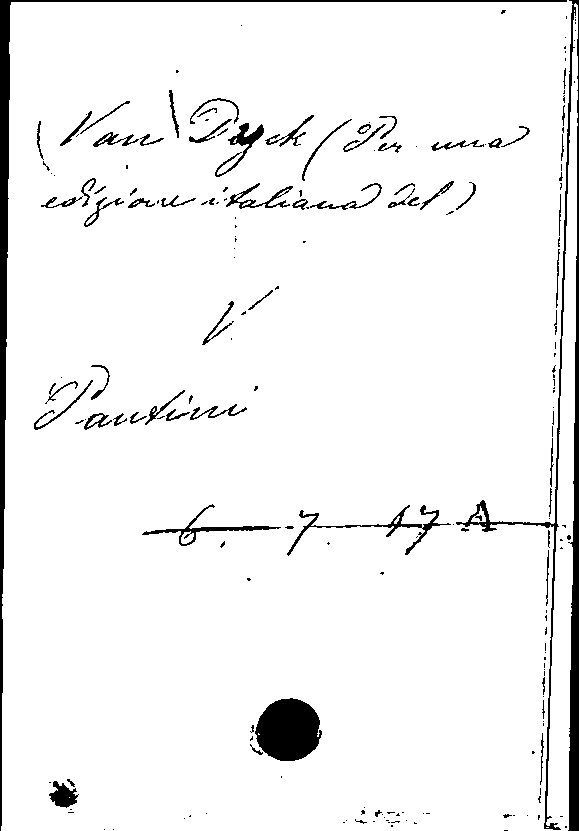 (Van) Dyck (Per una
edizione italiana del)
V
Pantini
6. 7 17 A